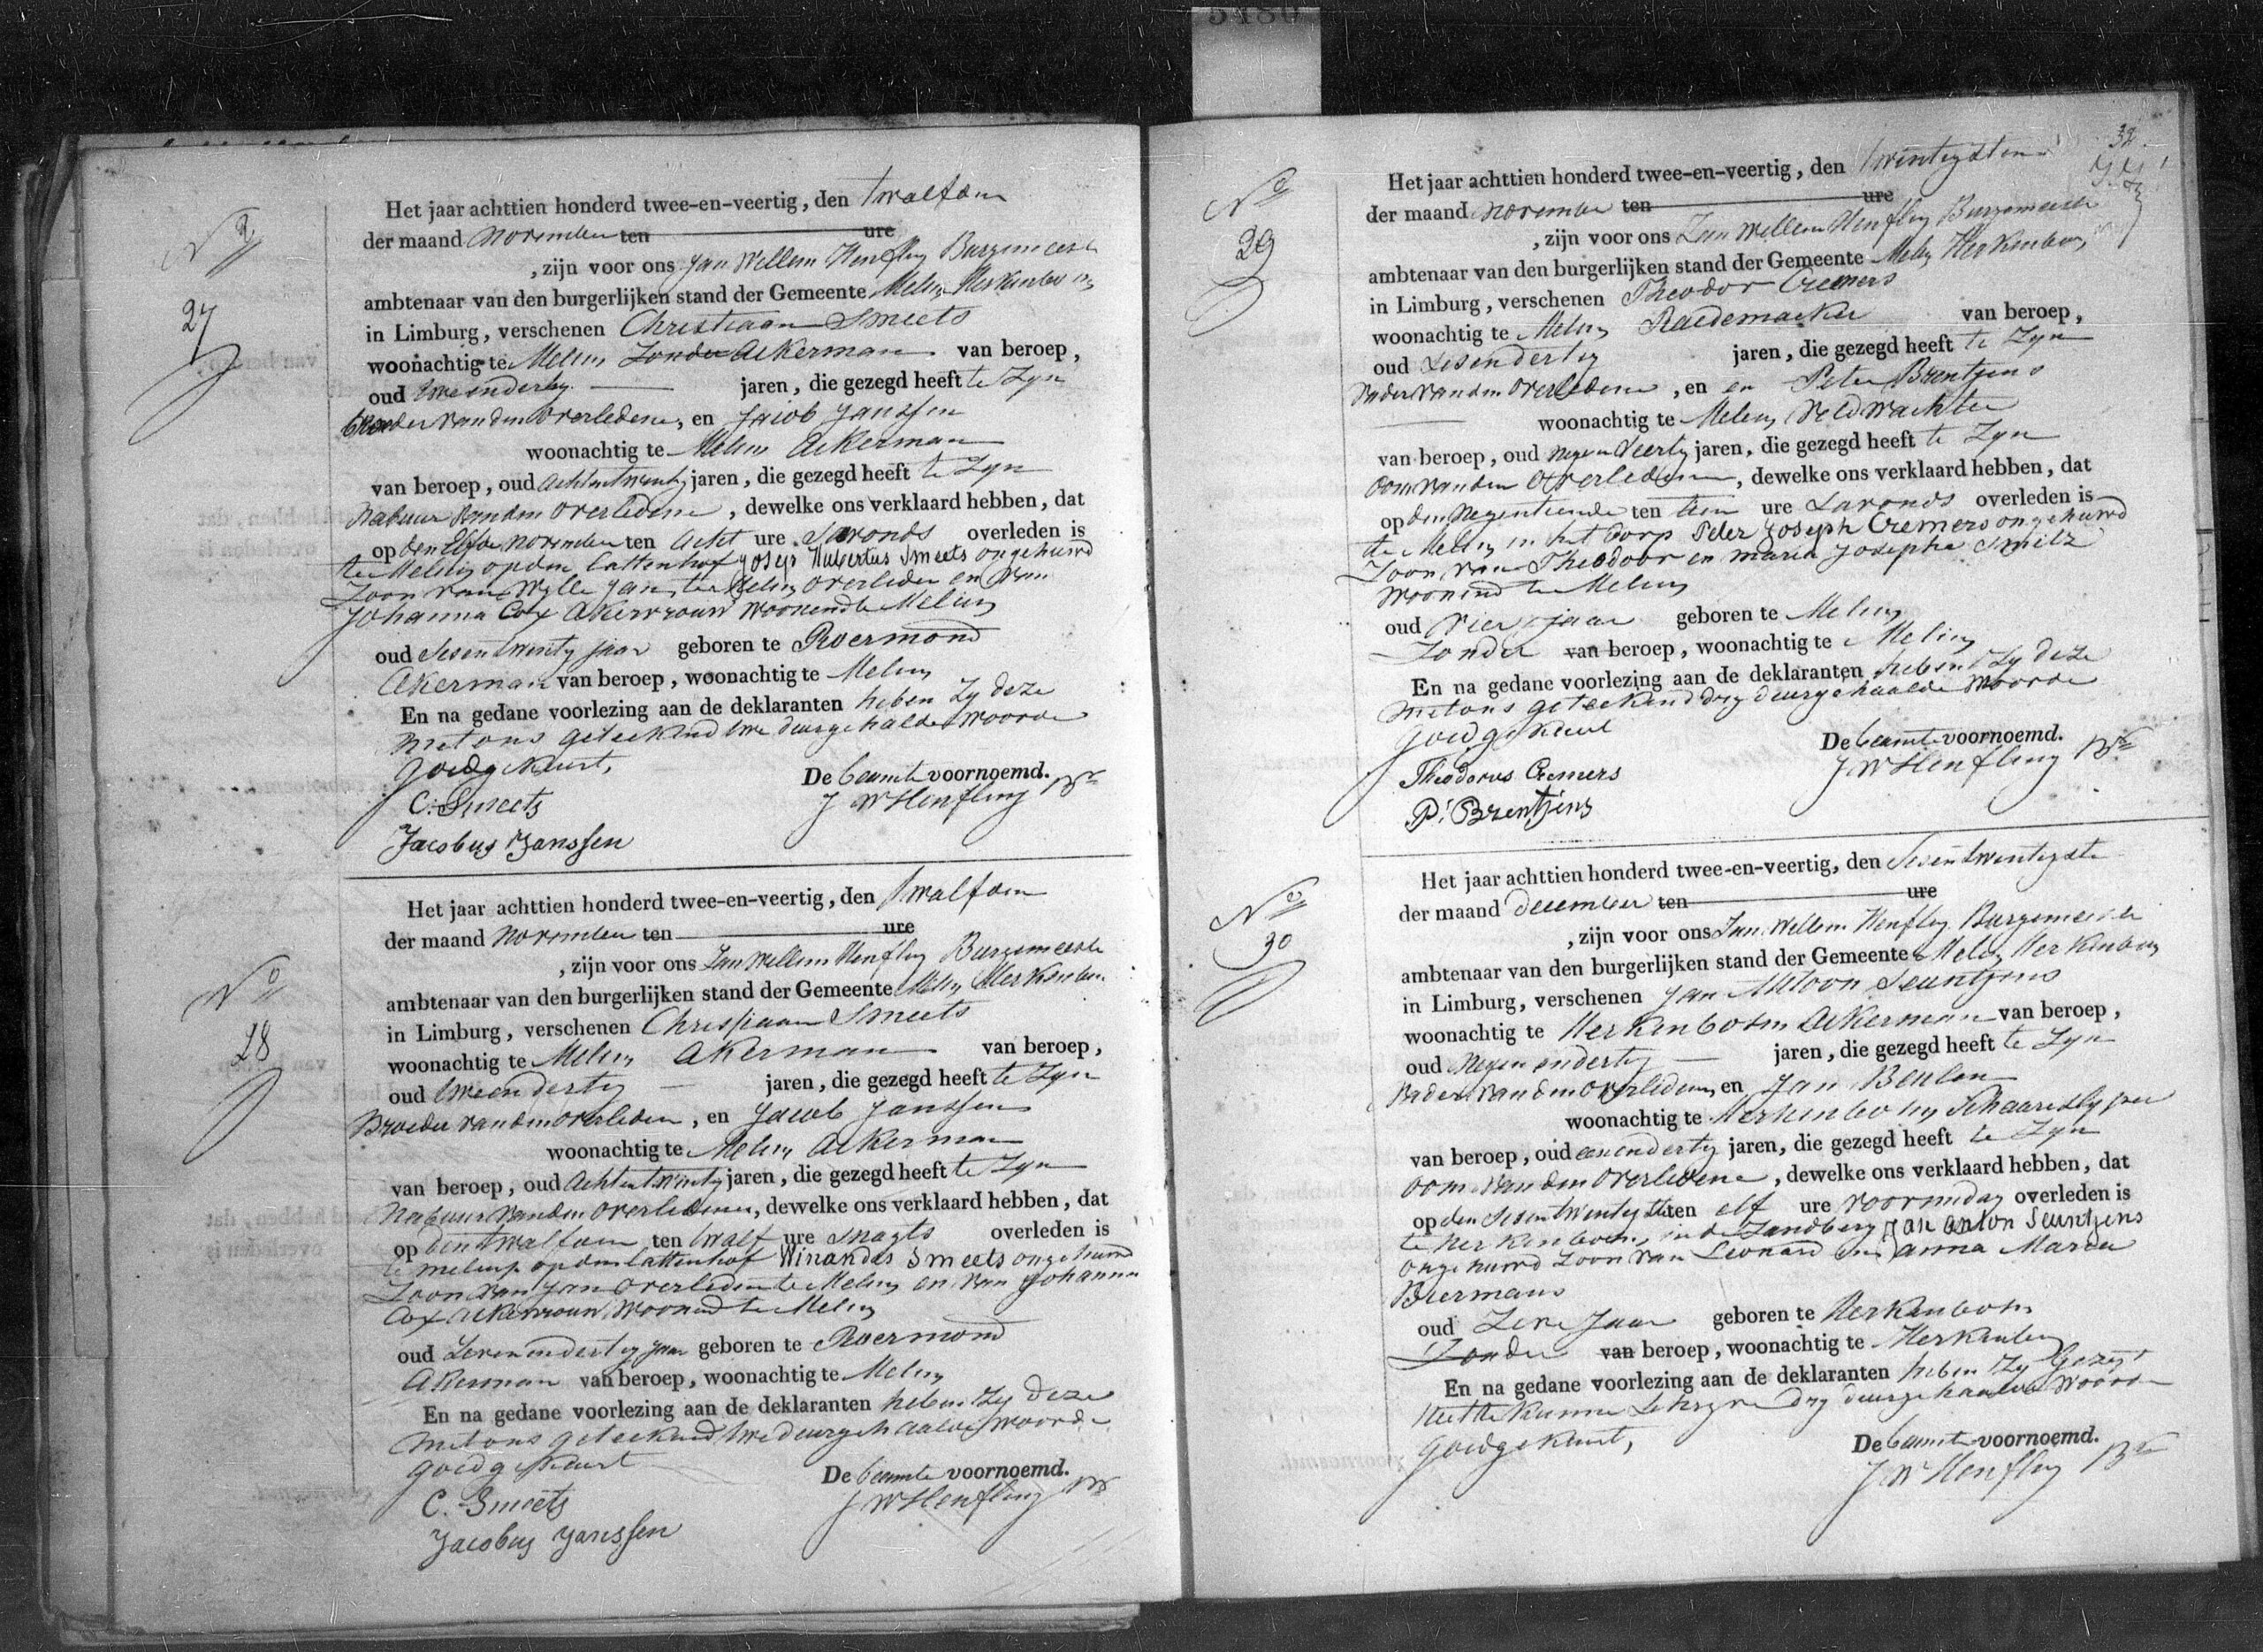 Het jaar achttien honderd twee-en-veertig, den twalfden
der maand november ten ure
, zijn voor ons Jan Willem Henfling Burgemeester
ambtenaar van den burgerlijken stand der Gemeente Melin Herkenbosch
in Limburg, verschenen Christiaan Smeets
woonachtig te Melin Zonder Akerman van beroep,
oud tweenderty jaren, die gezegd heeft te Zyn
Broeder van den overledene, en Jacob Janssen
woonachtig te Melin Ackerman
van beroep, oud Achtentwenty jaren, die gezegd heeft te Zyn
Nabuur van den overledene, dewelke ons verklaard hebben, dat
op den Elfde november ten Acht ure Savonds overleden is
te Melin op den Cattenhof Josep Hubertus Smeets ongehuwd
Zoon van Wylle Jan te Melin overleden en van
Johanna Cox Akervrouw woonende Melin
oud Sesentwenty jaar geboren te Roermond
Akerman van beroep, woonachtig te Melin
En na gedane voorlezing aan de deklaranten heben Zy deze
met ons geteekend twe deurgehalde woorde
goedgekeurt,
De beamte voornoemd.
C. Smeets
J W Henfling Br
Jacobus Janssen
No
27
Het jaar achttien honderd twee-en-veertig, den twalfden
der maand november ten ure
, zijn voor ons Jan Willem Henfling Burgemeester
ambtenaar van den burgerlijken stand der Gemeente Melin Herkenbosch
in Limburg, verschenen Christiaan Smeets
woonachtig te Melin Akerman van beroep,
oud tweenderty jaren, die gezegd heeft te Zyn
Broeder van den overleden, en Jacob Janssen
woonachtig te Melin Ackerman
van beroep, oud Achtentwinty jaren, die gezegd heeft te Zyn
Nabuur van den overledene, dewelke ons verklaard hebben, dat
op den twalfden ten twalf ure Snagts overleden is
te melin op den Cattenhof Winandus Smeets ongehuwd
Zoon van Jan overleden te Melin en van Johanna
Cox Akervrouw woonend te Melin
oud Zevenenderty jaar geboren te Roermond
Akerman van beroep, woonachtig te Melin
En na gedane voorlezing aan de deklaranten heben Zy deze
met ons geteekend twe deurgehaalde woorde
goedgekeurt
De beamte voornoemd.
C. Smeets
J W Henfling Br
Jacobus Janssen
No
28
32
Het jaar achttien honderd twee-en-veertig, den twintigsten
der maand november ten ure
, zijn voor ons Jan Willem Henfling Burgemeester
ambtenaar van den burgerlijken stand der Gemeente Melin Herkenbosch
in Limburg, verschenen Theodor Cremers
woonachtig te Melin Raedemacker van beroep,
oud Sesenderty jaren, die gezegd heeft te Zyn
Vader van den overledene, en en Peter Brentjens
woonachtig te Melin Veldwachter
van beroep, oud negenveerty jaren, die gezegd heeft te Zyn
oom van den overledene, dewelke ons verklaard hebben, dat
op den Negentiende ten tien ure Savonds overleden is
te Melin in het dorp Peter Joseph Cremers ongehuwd
Zoon van Theodoor en maria Josepha Smitz
Woonend te Melin
oud Vier jaar geboren te Melin
Zonder van beroep, woonachtig te Melin
En na gedane voorlezing aan de deklaranten heben Zy deze
met ons geteekend dry deurgehaalde woorde
goedgekeurt
De beamte voornoemd.
Theodorus Cremers
J W Henfling Br
P. Brentjens
No
29
Het jaar achttien honderd twee-en-veertig, den Sesentwentigste
der maand december ten ure
, zijn voor ons Jan Willem Henfling Burgemeester
ambtenaar van den burgerlijken stand der Gemeente Melin Herkenbosch
in Limburg, verschenen Jan Antoon Seuntjens
woonachtig te Herkenbosch Ackerman van beroep,
oud Negenenderty jaren, die gezegd heeft te Zyn
Vader van den overledene, en Jan Beulen
woonachtig te Herkenbosch Schaareslyper
van beroep, oud eenenderty jaren, die gezegd heeft te Zyn
oom van den overledene, dewelke ons verklaard hebben, dat
op den Sesentwentigste ten elf ure voormidag overleden is
te herkenbosch, in de Zandberg Jan anton Seuntjens
ongehuwd Zoon van Leonard en anna Maria
Biermans
oud Zeve Jaar geboren te Herkenbosch
Zonder van beroep, woonachtig te Herkenbosch
En na gedane voorlezing aan de deklaranten heben Zy Gezegt
niet te kunne Schryve dry deurgehaalde woorde
goedgekeurt,
De beamte voornoemd.
J W Henfling Br
No
30